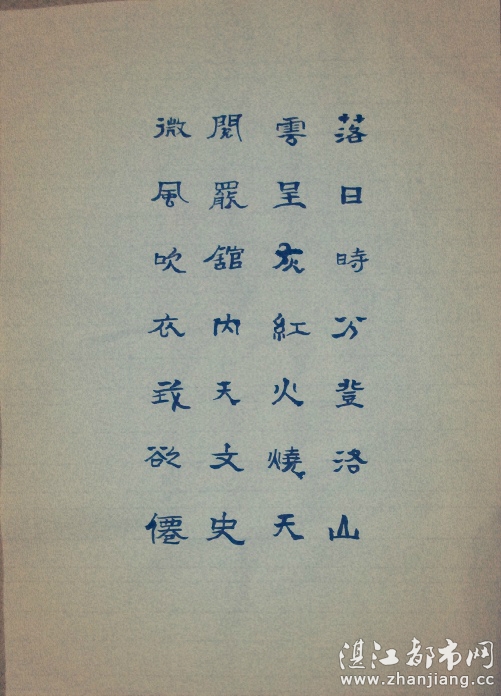 落日時分登洛山
雲呈灰紅火燒天
閱罷舘内天文史
微風吹衣我欲僊
湛江都市网
www.zhanjiang.cc